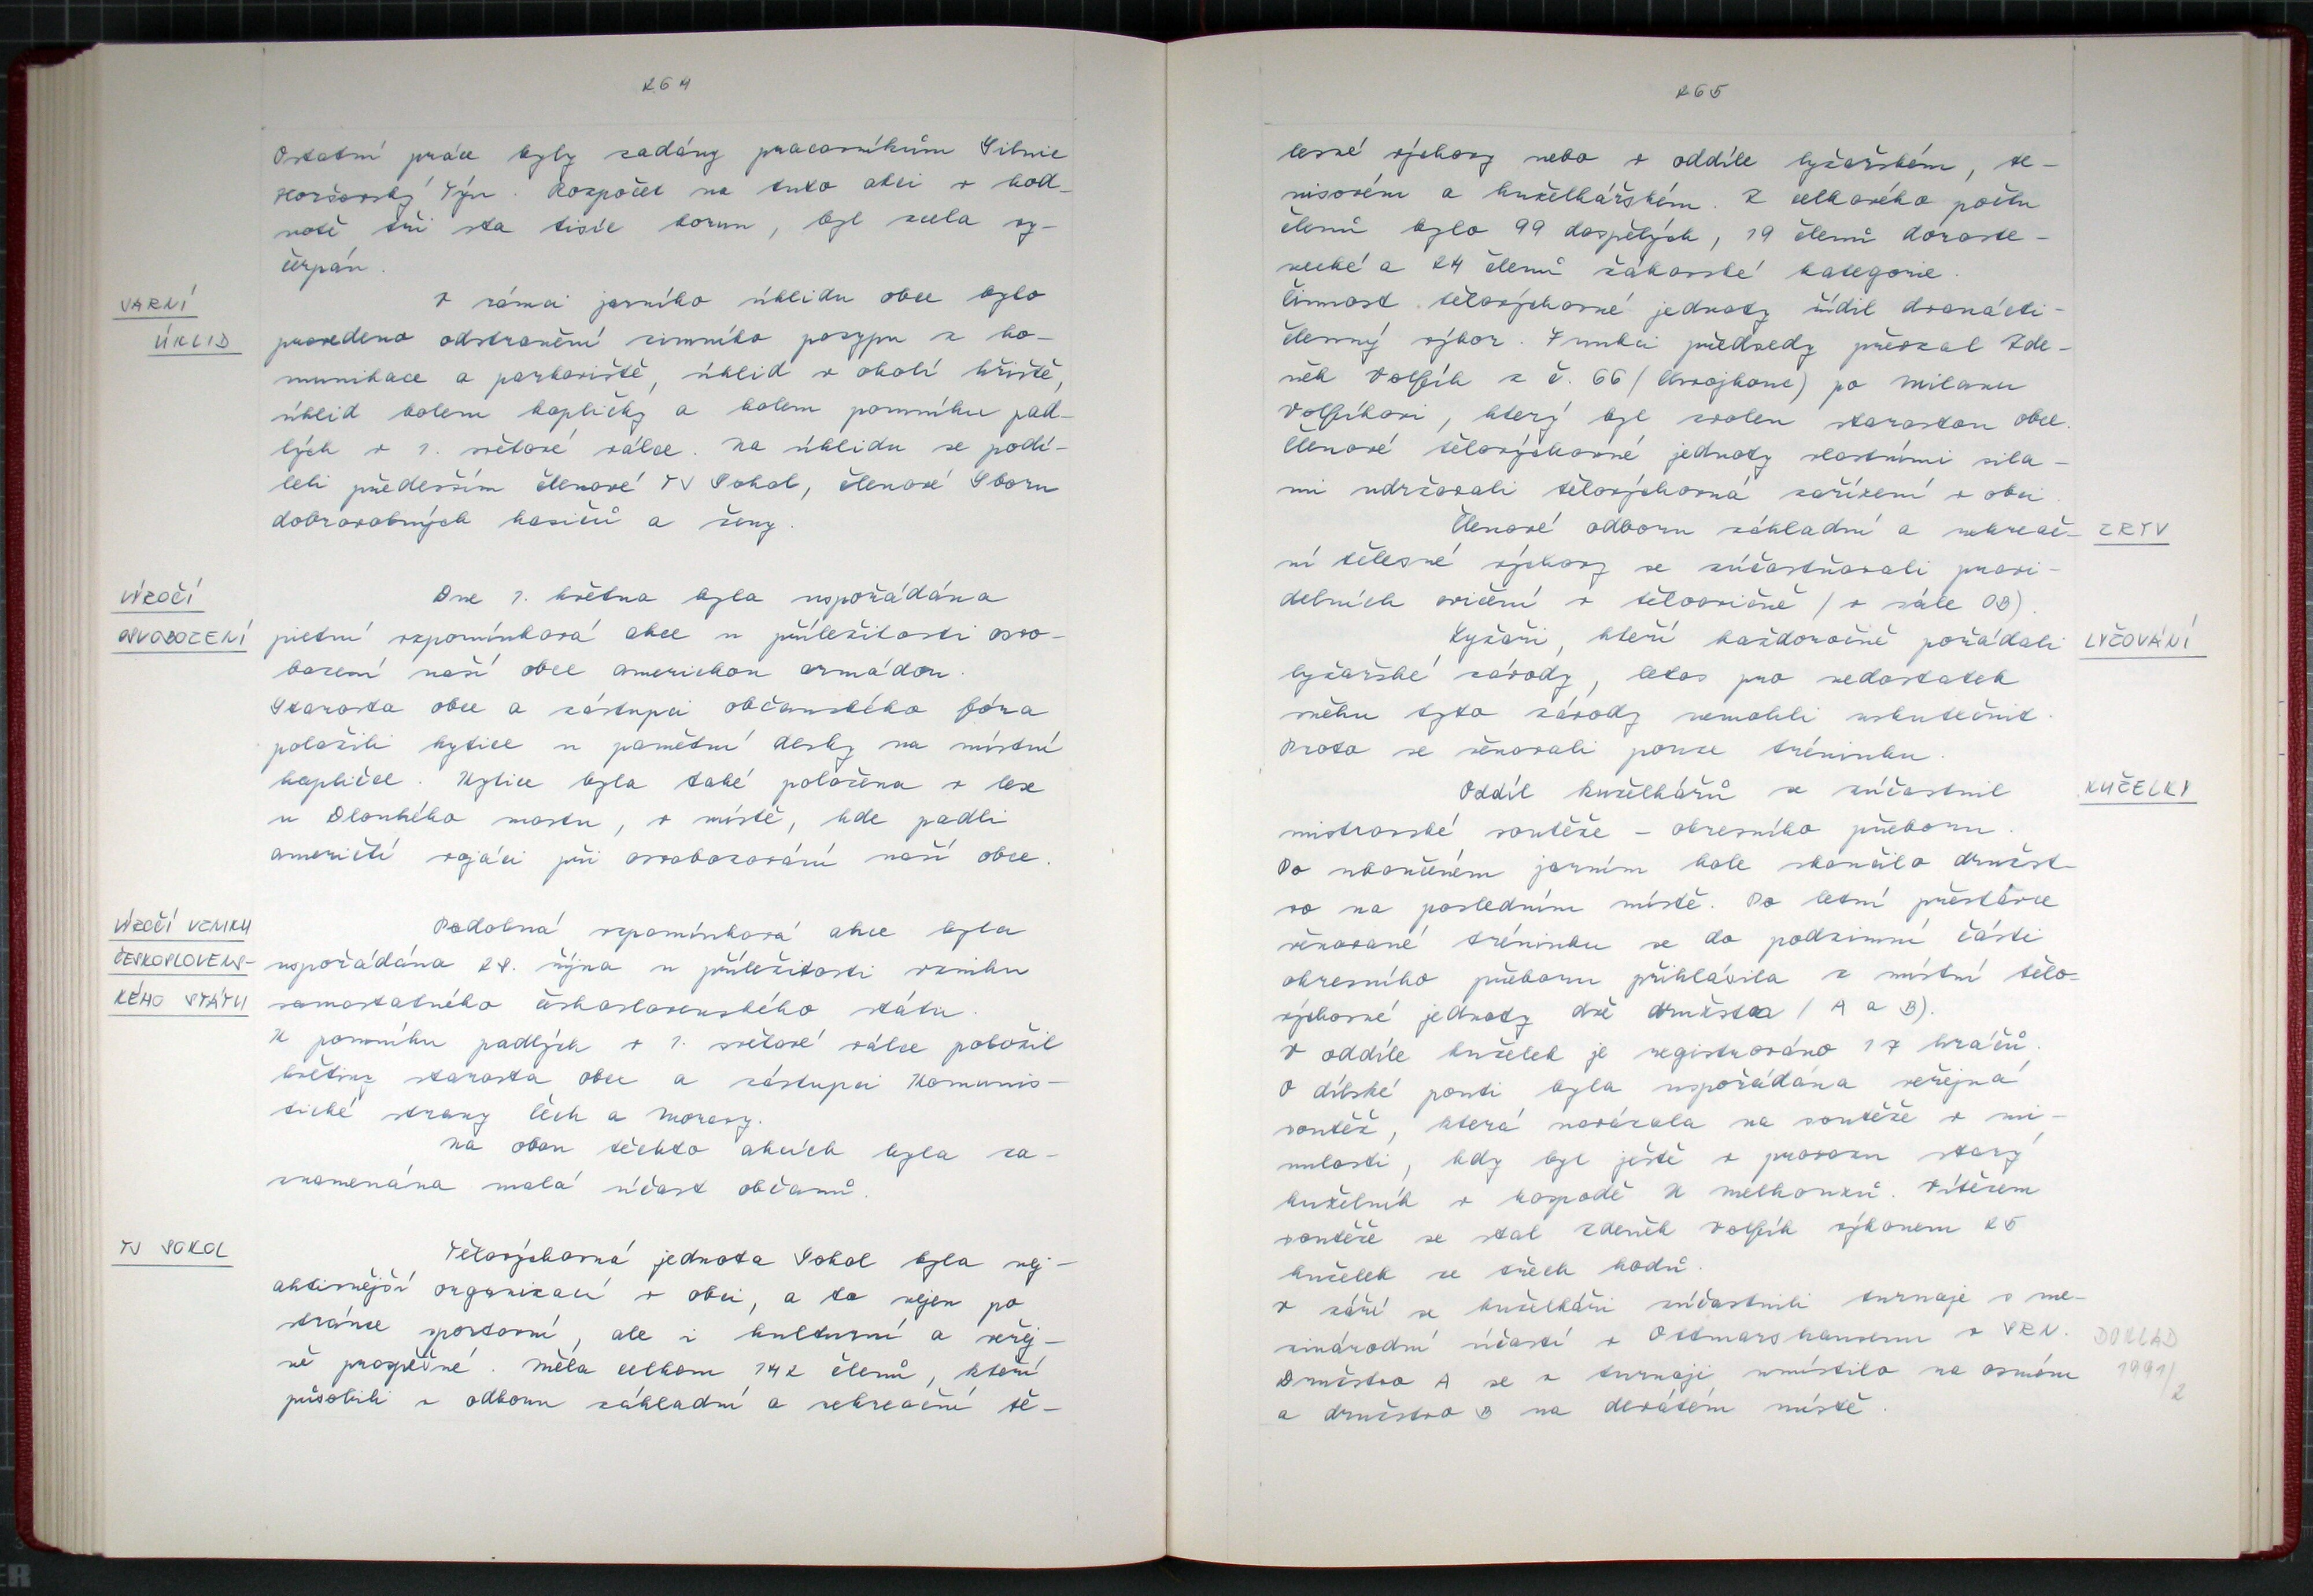 264
Ostatní práce byly zadány pracovníkům Silnic
Horšovský Týn. Rozpočet na tuto akci v hod-
notě tři sta tisíc korun, byl zcela vy-
čerpán.
JARNÍ
ÚKLID
V rámci jarního úklidu obce bylo
provedeno odstranění zimního posypu z ko-
munikace a parkoviště, úklid v okolí hřiště,
úklid kolem kapličky a kolem pomníku pad-
lých v 1. světové válce. Na úklidu se podí-
leli především členové TJ Sokol, členové Sboru
dobrovolných hasičů a ženy.
VÝROČÍ
OSVOBOZENÍ
Dne 1. května byla uspořádána
pietní vzpomínková akce u příležitosti osvo-
bození naší obce americkou armádou.
Starosta obce a zástupci občanského fóra
položili kytice u pamětní desky na místní
kapličce. Kytice byla také položena v lese
u Dlouhého mostu, v místě, kde padli
američtí vojáci při osvobozování naší obce.
VÝROČÍ VZNIKU
ČESKOSLOVENS-
KÉHO STÁTU
Podobná vzpomínková akce byla
uspořádána 28. října u příležitosti vzniku
samostatného československého státu.
K pomníku padlých v 1. světové válce položil
květiny starosta obce a zástupci Komunis-
tické strany Čech a Moravy.
Na obou těchto akcích byla za-
znamenána malá účast občanů.
TJ SOKOL
Tělovýchovná jednota Sokol byla nej-
aktivnější organizací v obci, a to nejen po
stránce sportovní, ale i kulturní a veřej-
ně prospěšné. Měla celkem 142 členů, kteří
působili v odboru základní a rekreační tě-
265
lesné výchovy nebo v oddíle lyžařském, te-
nisovém a kuželkářském. Z celkového počtu
členů bylo 99 dospělých, 19 členů doroste-
necké a 24 členů žákovské kategorie.
Činnost tělovýchovné jednoty řídil dvanácti-
členný výbor. Funkci předsedy převzal Zde-
něk Volfík z č. 66 / Chvojkovc) po Milanu
Volfíkovi, který byl zvolen starostou obce.
Členové tělovýchovné jednoty vlastními sila-
mi udržovali tělovýchovná zařízení v obci.
Členové odboru základní a rekreač-
ZRTV
ní tělesné výchovy se zúčastňovali pravi-
delních cvičení v tělocvičně / v sále OB).
Lyžaři, kteří každoročně pořádali
LYŽOVÁNÍ
lyžařské závody, letos pro nedostatek
sněhu tyto závody nemohli uskutečnit.
Proto se věnovali pouze tréninku.
Oddíl kuželkářů se zúčastnil
KUŽELKY
mistrovské soutěže - okresního přeboru.
Po ukončeném jarním kole skončilo družst-
vo na posledním místě. Po letní přestávce
věnované tréninku se do podzimní části
okresního přeboru přihlásila z místní tělo-
výchovné jednoty dvě družstva / A a B).
V oddíle kuželek je registrováno 17 hráčů.
O dílské pouti byla uspořádána veřejná
soutěž, která navázala na soutěže v mi-
nulosti, kdy byl ještě v provozu starý
kuželník v hospodě U Melkonků. Vítězem
soutěže se stal Zdeněk Volfík výkonem 25
kuželek ze třech hodů.
V září se kuželkáři zúčastnili turnaje s me-
zinárodní účastí v Ottmarshausenu v SRN.
DOKLAD
1991/2
Družstvo A se v turnaji umístilo na osmém
a družstvo B na devátém místě.